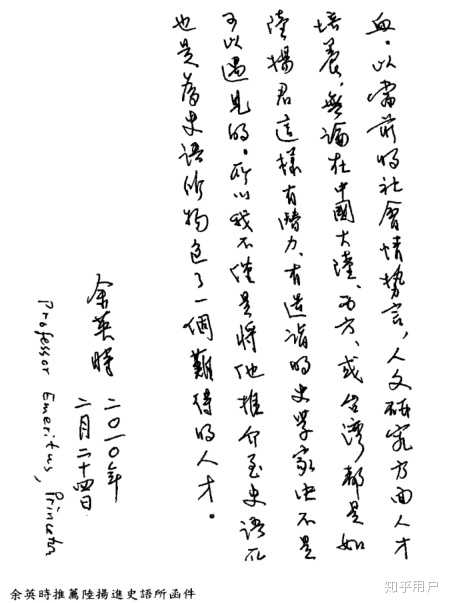 血。以當前的社會情勢言,人文研究方面人才
培養,無論在中國大陸、西方、或台灣都是如
陸揚君這樣有潛力、有造詣的史學家決不是
可以遇見的。所以我不僅是將他推介至史語所
也是為史語所物色了一個難得的人才。
余英時 二〇一〇年
二月二十四日
Professor Emeritus, Princeton
余英時推薦陸揚進史語所函件
知乎用户